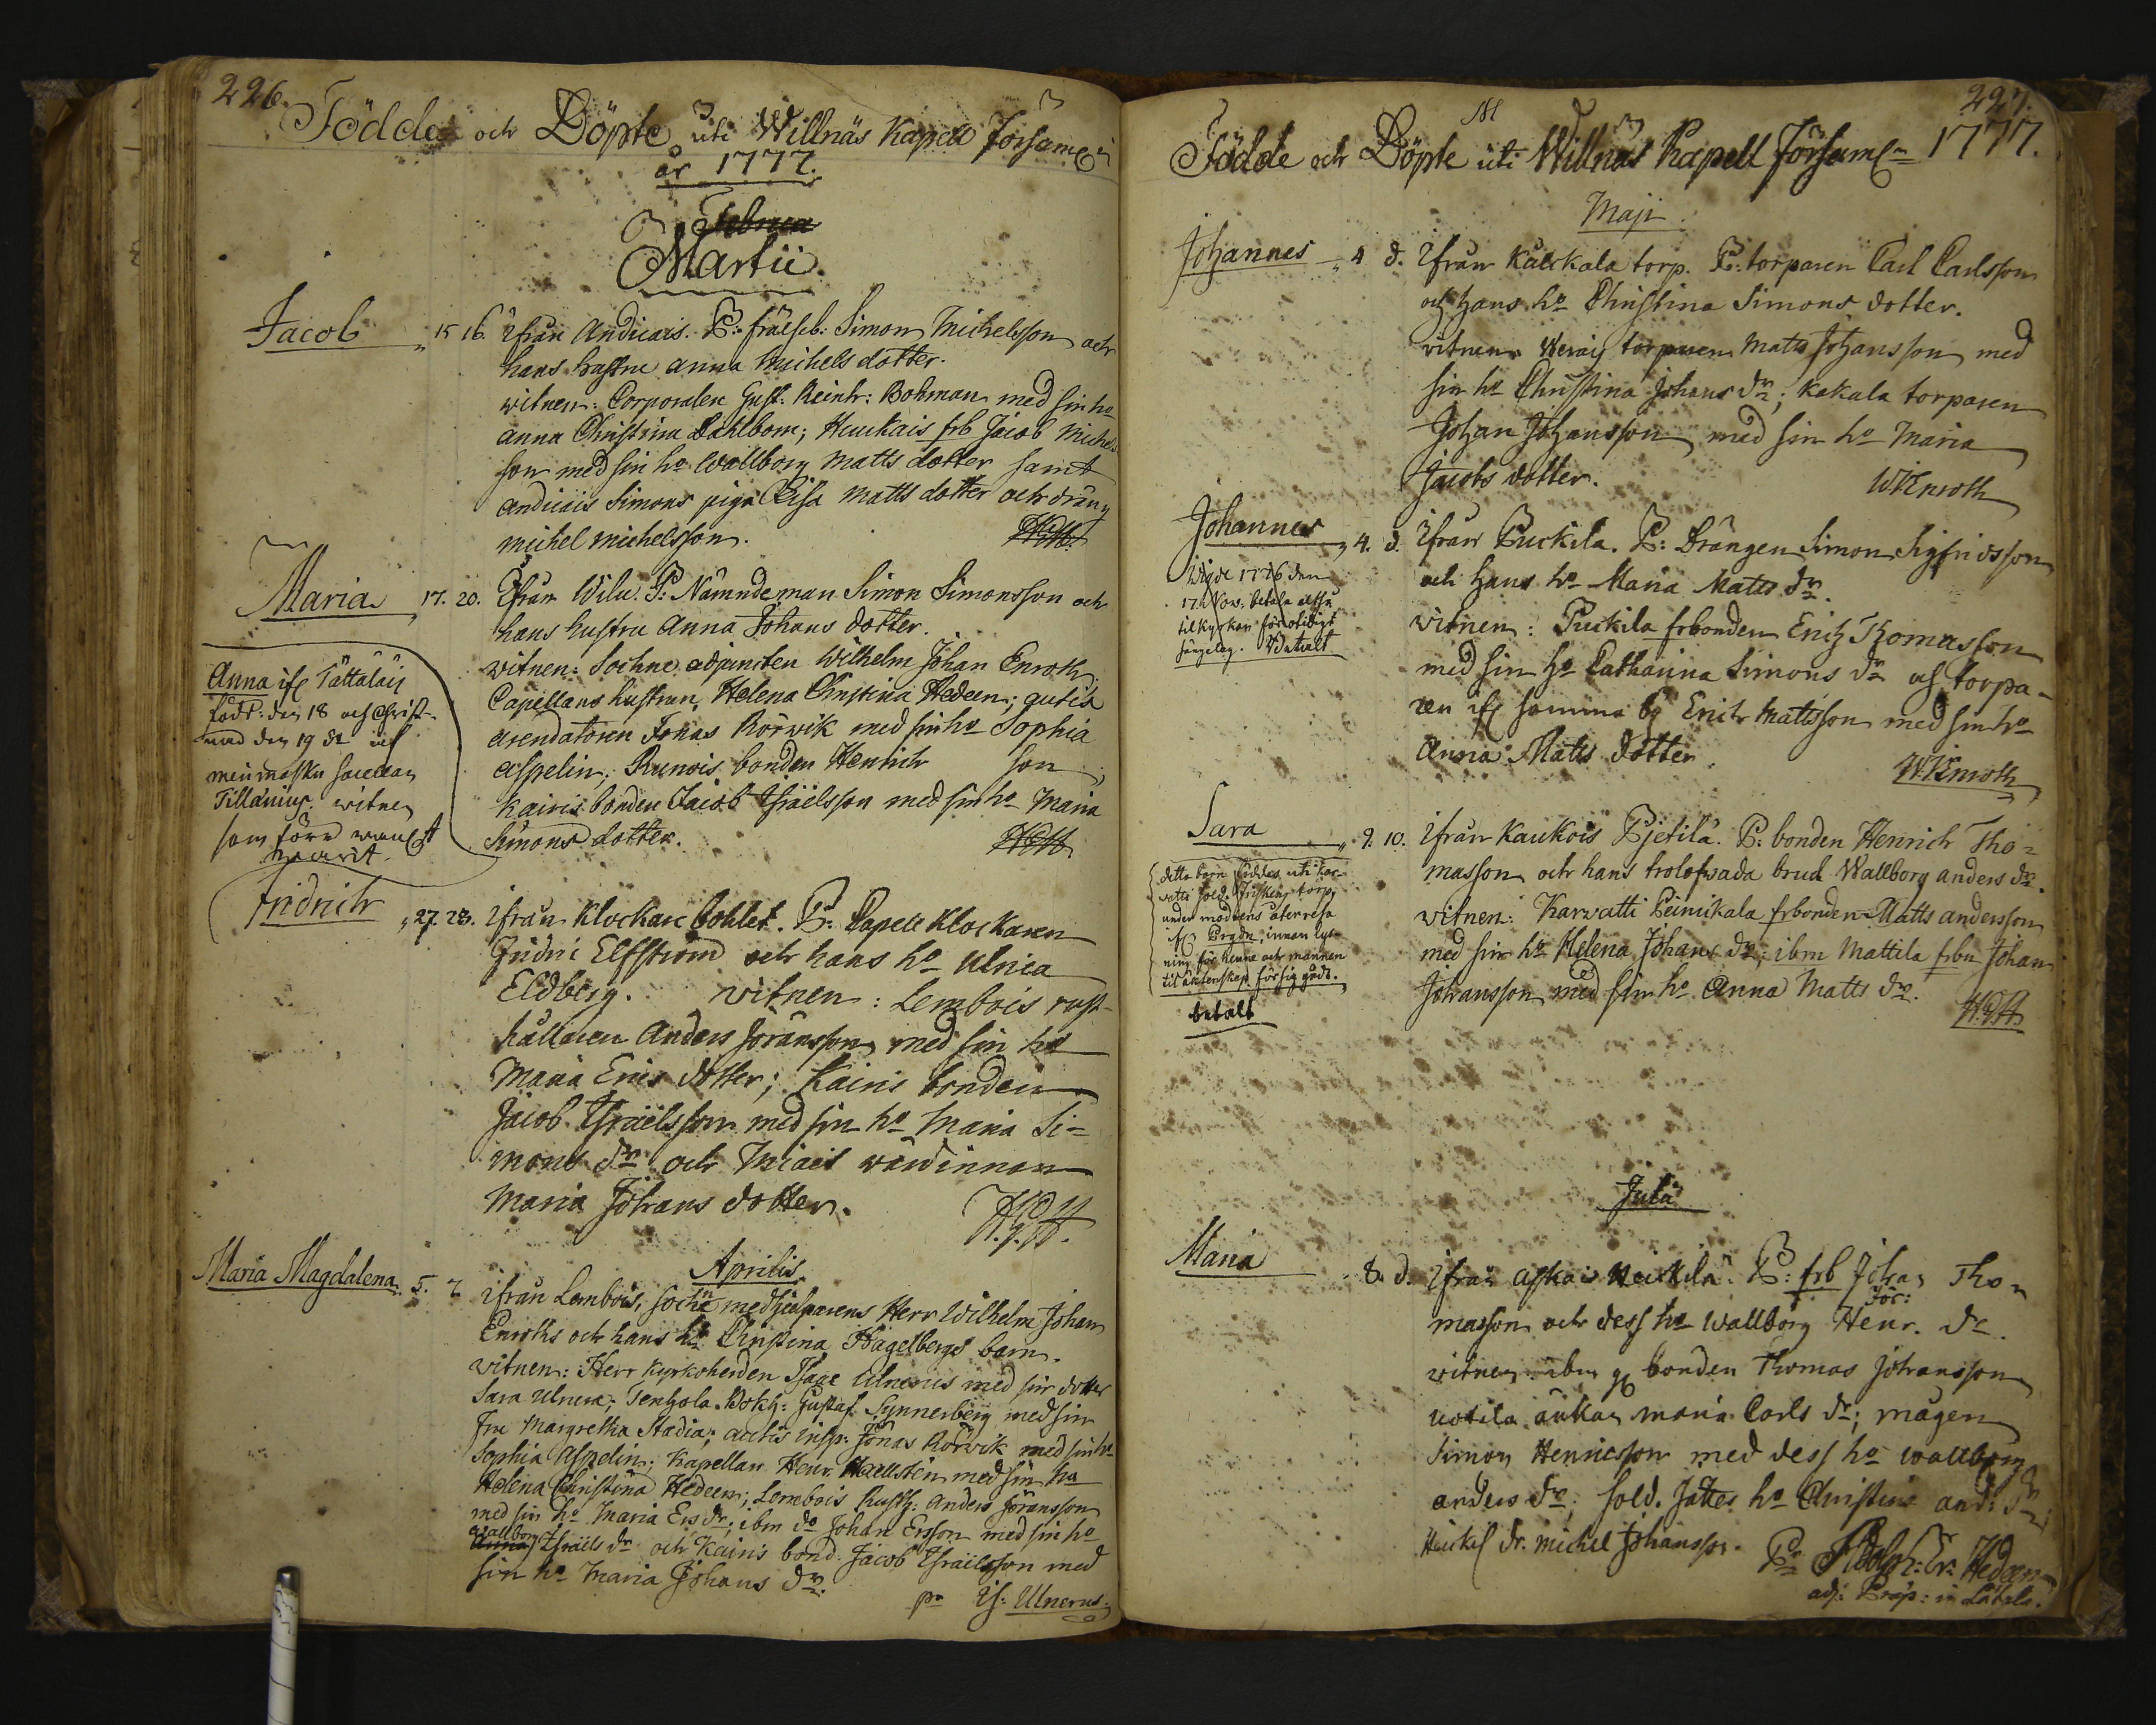 226.
Födde och Döpte uti Willnäs Kapell Församl:n
år 1777.
Februa
Martii.
Jacob " 15 16. Ifrån Andiais. P: frälseb: Simon Michelsson och
hans hustru Anna Michels dotter.
witnen: Corporalen Gust: Reinh: Bohman med sin ho
Anna Christina Dahlbom; Haukais frb Jacob Michels
son med sin ho Wallborg Matts dotter samt
Andiais Simons piga Lisa Matts dotter och dräng
Michel Michelsson.
Maria " 17. 20. Ifrån Wilu. P: Nämndeman Simon Simonsson och
hans hustru Anna Johans dotter.
witnen: Sochne adjuncten Wilhelm Johan Enroth;
Capellans hustrun, Helena Christina Hedeen;
arendatoren Jonas Rörwik med sin ho Sophia
Aspelin; Runois bonden Henrich son;
Kairis bonden Jacob Israëlsson med sin ho Maria
Simons dotter.
Anna
född: den 18 och Christ-
nad den 19 dt
Tillänius. witnen
Fridrich " 27. 28. Ifrån Klockare bohlet. P: Capell Klockaren
Fridric Elfström och hans ho Ulrica
Eldberg. witnen: Lembois rust-
hållaren Anders Göransson med sin ho
Maria Erics dotter; Kairis bonden
Jacob Israëlsson med sin ho Maria Si=
mons dr och wärdinnan
Maria Johans dotter.
Aprilis
Maria Magdalena. 5. 7. ifrån Lembois, Sochne medhjelparens Herr Wilhelm Johan
Enroths och hans ho Christina Hagelbergs barn.
witnen: Herr Kyrkoherden Isaac Ulnerus med sin dotter
Sara Ulnera; Tenhola Bokh: Gustaf Synnerberg med sin
fru Margretha Stadia; insp: Jonas Rörwik med sin ho
Sophia Aspelin; Kapellan Henr. Haellstén med sin ho
Helena Christina Hedeen; Lembois Rusth: Anders Göransson
med sin ho Maria Ers dr; ibm do Johan Ersson med sin ho
Wallborg
Anna Israëls dr och Kairis bond. Jacob Israëlsson med
sin ho Maria Johans dr.
pr Is: Ulnerus.
227.
Födde och Döpte uti Willnäs Kapell Församl:n 1777.
Maji
Johannes " 4 d. Ifrån Kackala torp. P: torparen Carl Carlsson
och hans ho Christina Simons dotter.
witnen torparen Matts Johansson med
sin ho Christina Johans dr; Kakala torparen
Johan Johansson med sin ho Maria
Jacobs dotter.
WJEnroth
Johannes " 4. d. Ifrån Puckila. P: Drängen Simon Sigfridsson
och hans ho Maria Matts dr.
witnen: Puckila frbonden Erich Thomasson
med sin ho Catharina Simons dr och torpa-
ren ifr samma by Erich Mattsson med sin ho
Anna Matts dotter.
WJEnroth
Wigde 1776 den
17 Nov: betala altså
til kyrkan för otidigt
sängelag. Betalt
Sara " 9. 10. Ifrån Kaukois Pjetilä. P: bonden Henrich Tho=
masson och hans trolofwada brud Wallborg Anders dr.
witnen: Karwatti Peinikala frbonden Matts Andersson
med sin ho Helena Johans dr; ibm Mattila frbn Johan
Johansson med sin ho Anna Matts dr.
detta barn föddes uti
sold. torp
under modrens återresa
ifr innan lys-
ning för henne och mannen
til äktenskap för sig gådt.
betalt
Julii
Maria 8. d. Ifrån Askais P: frb Johan Tho=
masson och dess ho Wallborg Henr. dr.
witnen ibm bonden Thomas Johansson
änkan Maria Carls dr; mågen
Simon Henricsson med dess ho Wallborg
Anders dr; sold. ho Christina And: dr;
dr. Michel Johansson. Pr Adolph: Er: Hedeen
adj: